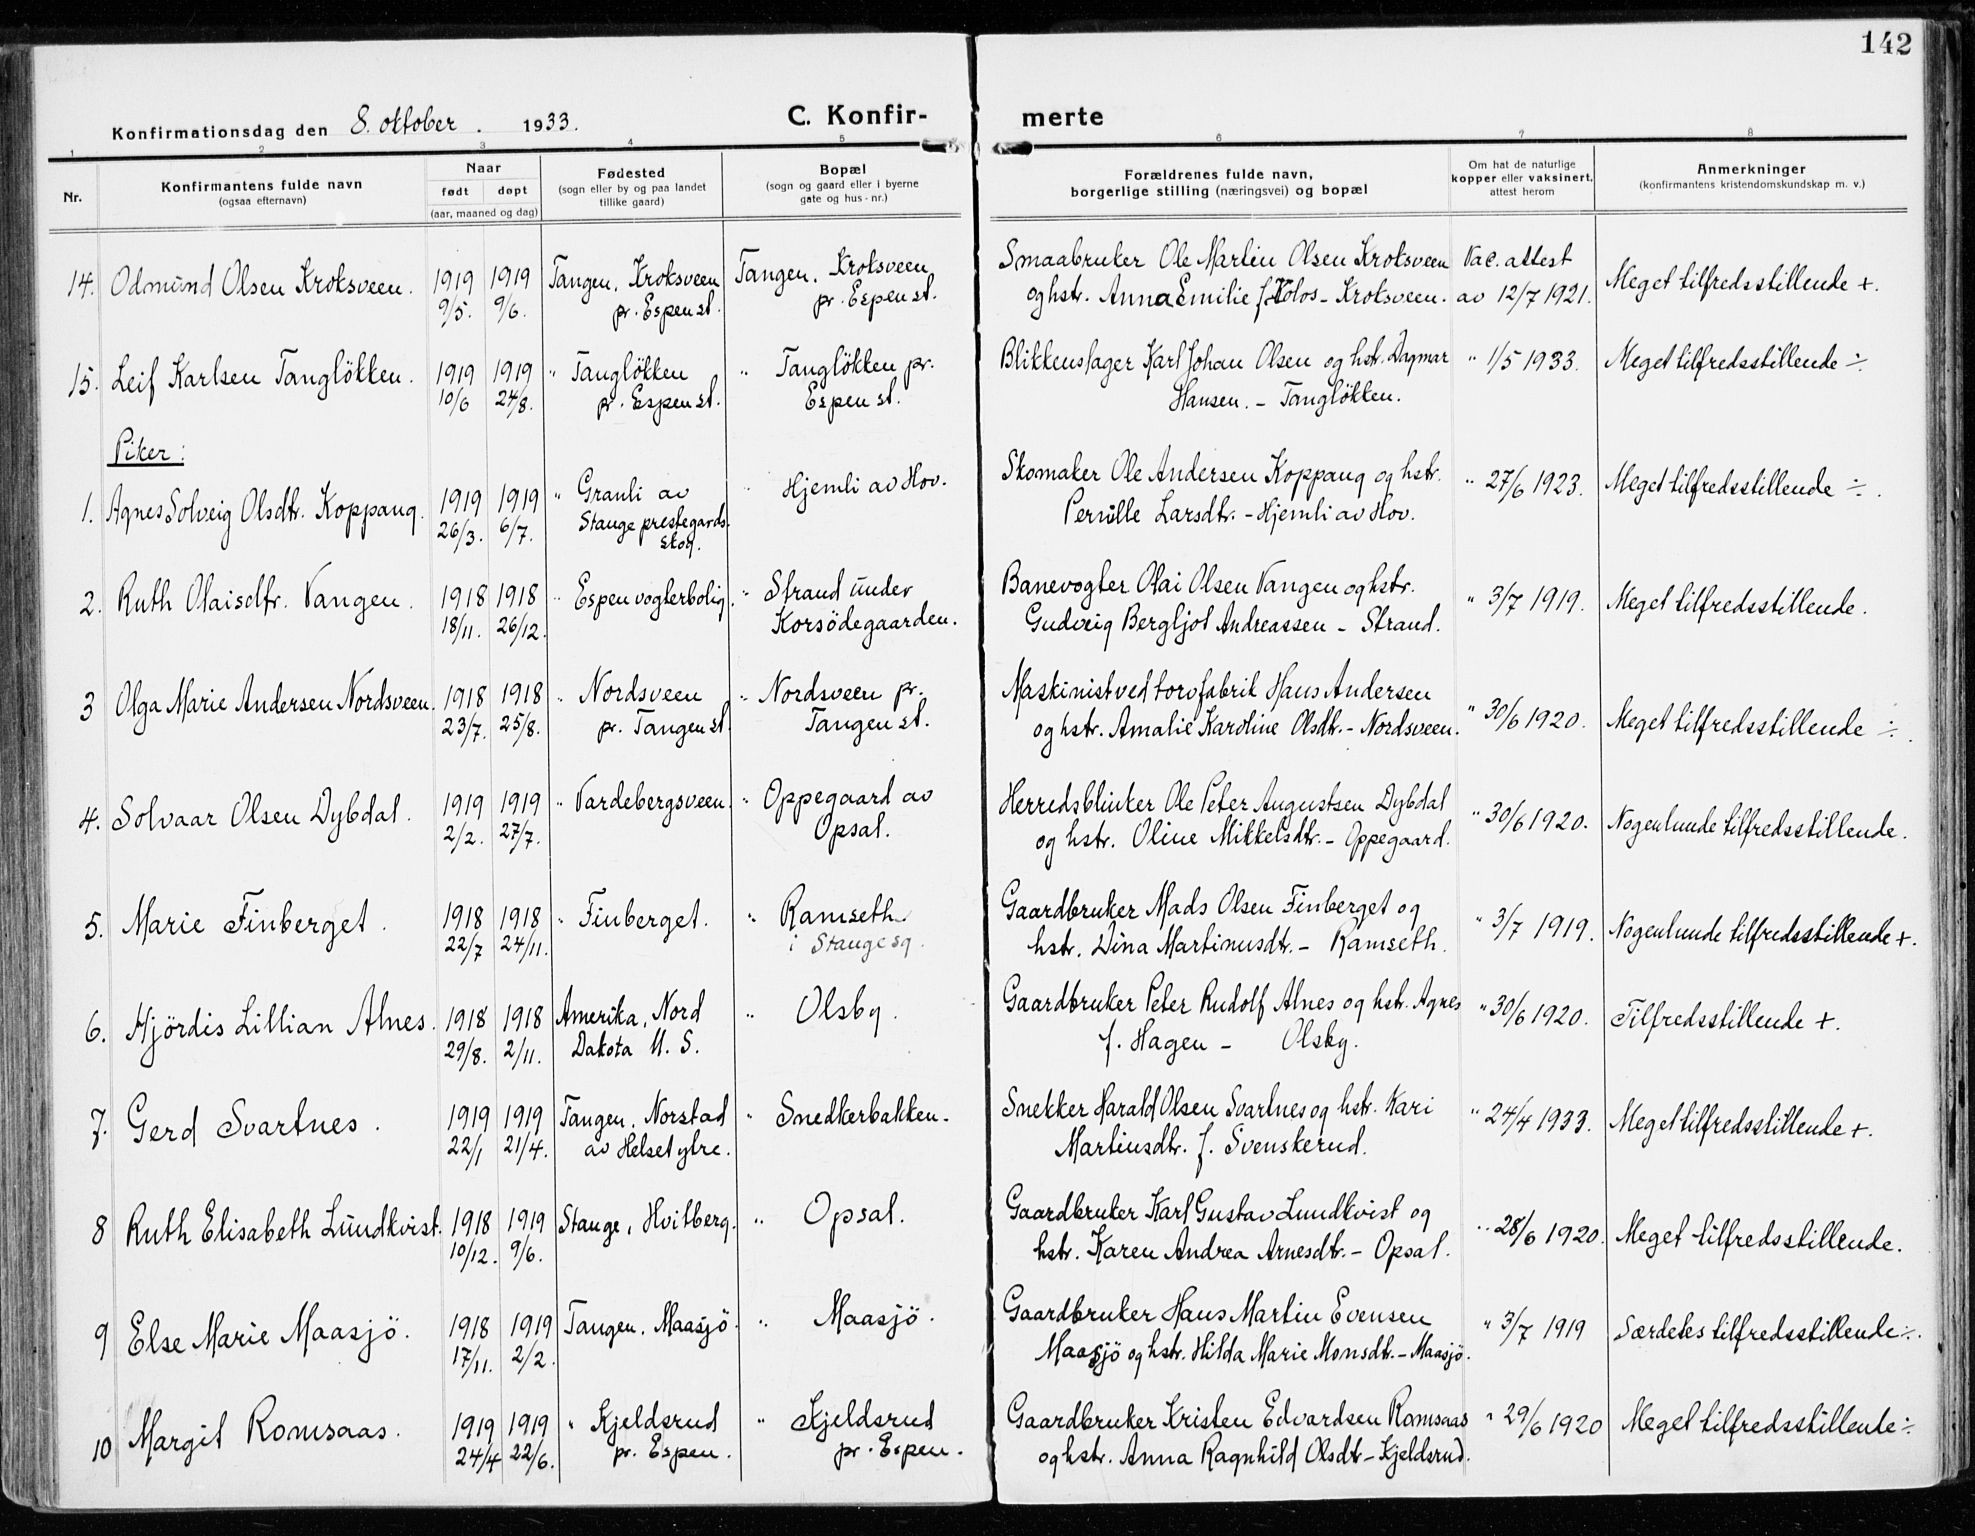 142
Konfirmationsdag den 8. oktober. 1933.
C. Konfir-
merte
1 2 3 4 5 6 7 8
Nr.
Konfirmantens fulde navn
(ogsaa efternavn)
Naar
født døpt
(aar, maaned og dag)
Fødested
(sogn eller by og paa landet
tillike gaard)
Bopæl
(sogn og gaard eller i byerne
gate og hus-nr.)
Forældrenes fulde navn,
borgerlige stilling (næringsvei) og bopæl
Om hat de naturlige
kopper eller vaksinert,
attest herom
Anmerkninger
(konfirmantens kristendomskundskap m. v.)
14. Odmund Olsen Kroksveen. 1919 1919 Tangen, Kroksveen Tangen, Kroksveen Smaabruker Ole Martin Olsen Kroksveen Vac. attest Meget tilfredsstillende +.
9/5. 9/6. pr. Espen st. pr. Espen st. og hstr. Anna Emilie f. Kolos - Kroksveen. av 12/7 1921.
15. Leif Karlsen Tangløkken. 1919 1919 " Tangløkken " Tangløkken pr. Blikkenslager Karl Johan Olsen og hstr. Dagmar " 1/5 1933. Meget tilfredsstillende ÷
10/6 24/8. pr. Espen st. Espen st. Hansen. - Tangløkken.
Piker:
1. Agnes Solveig Olsdtr. Koppang. 1919 1919 " Granli av " Hjemli av Hov. Skomaker Ole Andersen Koppang og hstr. " 27/6 1923. Meget tilfredsstillende ÷.
26/3. 6/7. Stange prestegards- Pernille Larsdtr. - Hjemli av Hov.
skog.
2. Ruth Olaisdtr. Vangen. 1918 1918 " Espen vogterbolig. " Strand under Banevogter Olai Olsen Vangen og hstr. " 3/7 1919. Meget tilfredsstillende.
18/11. 26/12. Korsødegaarden. Gudveig Bergljot Andreassen - Strand.
3 Olga Marie Andersen Nordsveen. 1918 1918 " Nordsveen " Nordsveen pr. Maskinist ved torvfabrik Hans Andersen " 30/6 1920. Meget tilfredsstillende ÷.
23/7. 25/8. pr. Tangen st. Tangen st. og hstr. Amalie Karoline Olsdtr. - Nordsveen.
4. Solvaar Olsen Dybdal. 1919 1919 " Vardebergsveen. " Oppegaard av Herredsblinker Ole Peter Augustsen Dybdal " 30/6 1920. Nogenlunde tilfredsstillende.
2/2. 27/7. Opsal. og hstr. Oline Mikkelsdtr. - Oppegaard.
5. Marie Finberget. 1918 1918 " Finberget. " Ramseth Gaardbruker Mads Olsen Finberget og " 3/7 1919. Nogenlunde tilfredsstillende +.
22/7 24/11. i Stange sg. hstr. Dina Martinusdtr. - Ramseth.
6. Hjørdis Lillian Alnes. 1918 1918 Amerika, Nord " Olsby. Gaardbruker Peter Rudolf Alnes og hstr. Agnes " 30/6 1920. Tilfredsstillende +.
29/8. 2/11. Dakota U. S. f. Hagen - Olsby.
7. Gerd Svartnes. 1919 1919 Tangen, Norstad " Snedkerbakken. Snekker Harald Olsen Svartnes og hstr. Kari " 24/4 1933. Meget tilfredsstillende +.
22/1 21/4. av Helset ytre. Martinsdtr. f. Svenskerud.
8 Ruth Elisabeth Lundkvist. 1918 1919 Stange, Hvitberg. " Opsal. Gaardbruker Karl Gustav Lundkvist og " 28/6 1920. Meget tilfredsstillende.
10/12. 9/6. hstr. Karen Andrea Arnesdtr. - Opsal.
9 Else Marie Maasjø. 1918 1919 Tangen, Maasjø. " Maasjø. Gaardbruker Hans Martin Evensen " 3/7 1919 Særdeles tilfredsstillende ÷.
17/11. 2/2. Maasjø og hstr. Hilda Marie Monsdtr. - Maasjø.
10 Margit Romsaas. 1919 1919 " Kjeldsrud " Kjeldsrud Gaardbruker Kristen Edvardsen Romsaas " 29/6 1920 Meget tilfredsstillende ÷
24/4 22/6. pr. Espen. pr. Espen. og hstr. Anna Ragnhild Olsdtr - Kjeldsrud.